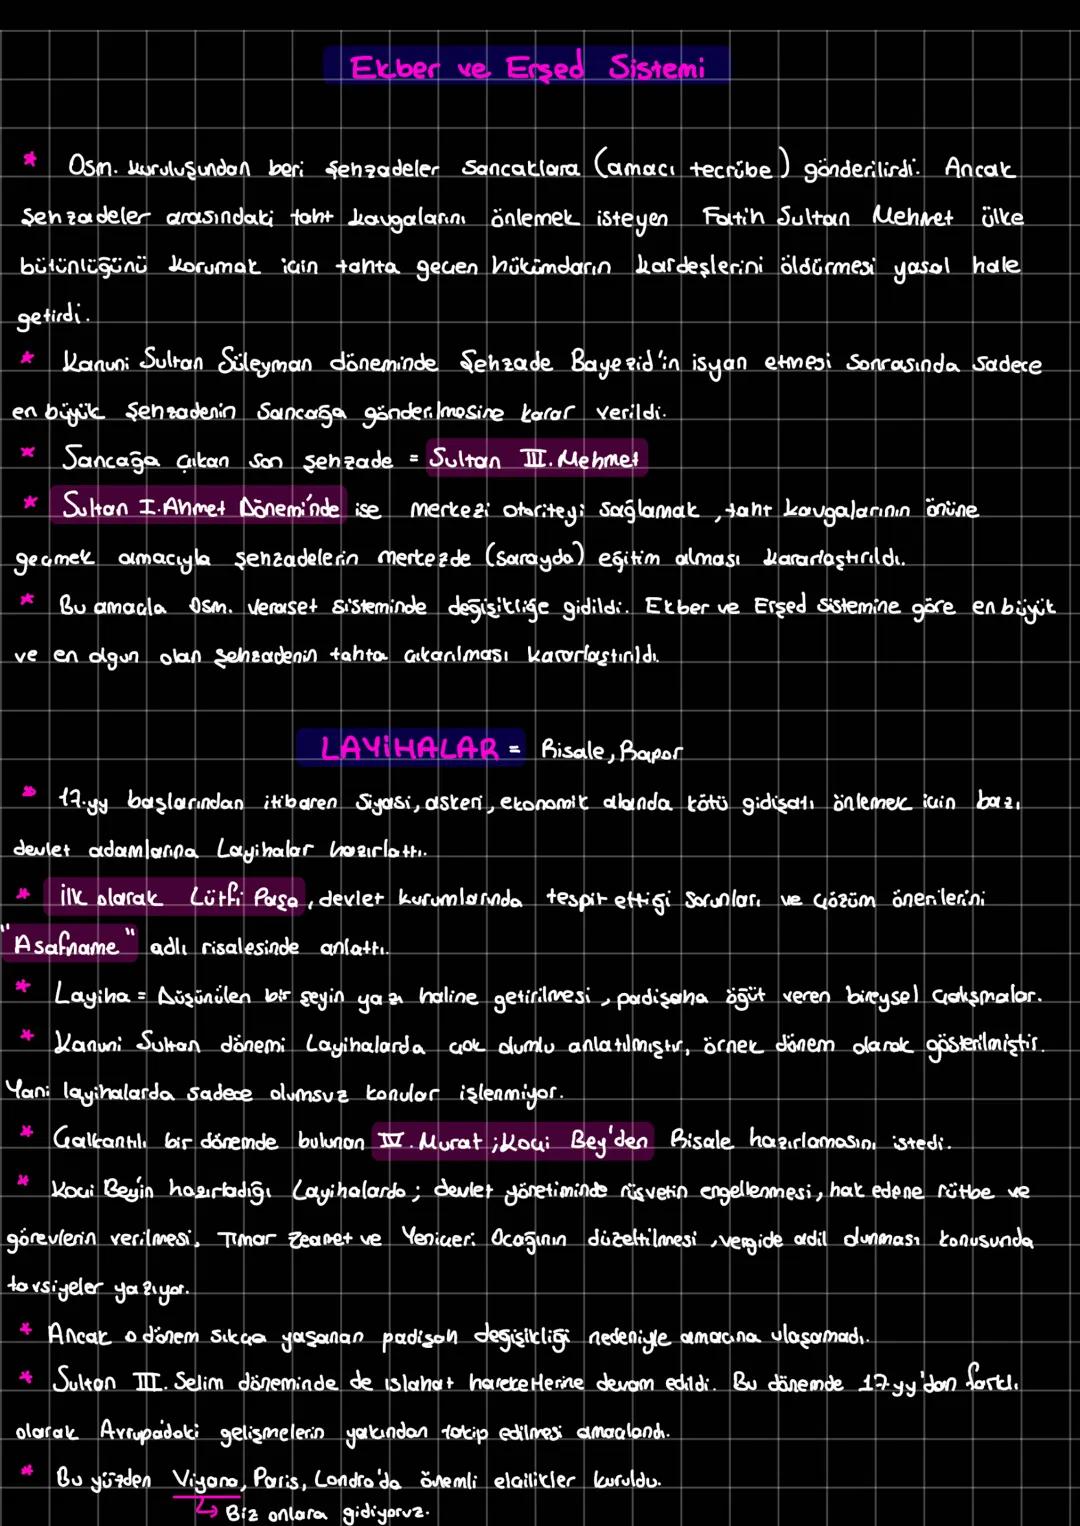 Ekber ve Erşed Sistemi
* Osm. kuruluşundan beri şehzadeler sancaklara (amacı tecrübe) gönderilirdi. Ancak
şehzadeler arasındaki taht kavgalarını önlemek isteyen Fatih Sultan Mehmet ülke
bütünlüğünü korumak için tahta geçen hükümdarın kardeşlerini öldürmesi yasal hale
getirdi.
* Kanuni Sultan Süleyman döneminde Şehzade Bayezid'in isyan etmesi sonrasında sadece
en büyük şehzadenin sancağa gönderilmesine karar verildi.
* Sancağa çıkan son şehzade = Sultan III. Mehmet
* Sultan I. Ahmet Dönemi'nde ise merkezi otoriteyi sağlamak, taht kavgalarının önüne
geçmek amacıyla şehzadelerin merkezde (sarayda) eğitim alması kararlaştırıldı.
* Bu amaçla Osm. Veraset sisteminde değişikliğe gidildi. Ekber ve Erşed sistemine göre en büyük
ve en olgun olan şehzadenin tahta çıkarılması kararlaştırıldı.
LAYİHALAR = Risale, Rapor
* 17.yy başlarından itibaren siyasi, askeri, ekonomik alanda kötü gidişatı önlemek için bazı
devlet adamlarına Layihalar hazırlattı.
* İlk olarak Lütfi Paşa, devlet kurumlarında tespit ettiği sorunları ve çözüm önerilerini
"Asafname" adlı risalesinde anlattı.
* Layiha = Düşünülen bir şeyin yazı haline getirilmesi, padişaha öğüt veren bireysel çalışmalar.
* Kanuni Sultan dönemi Layihalarda çok olumlu anlatılmıştır, örnek dönem olarak gösterilmiştir.
Yani layihalarda sadece olumsuz konular işlenmiyor.
* Çalkantılı bir dönemde bulunan IV. Murat; Koçi Bey'den Risale hazırlamasını istedi.
* Koçi Beyin hazırladığı Layihalarda; devlet yönetiminde rüşvetin engellenmesi, hak edene rütbe ve
görevlerin verilmesi, Tımar Zeamet ve Yeniçeri Ocağının düzeltilmesi, vergide adil olunması konusunda
tavsiyeler yazıyor.
* Ancak o dönem sıkça yaşanan padişah değişikliği nedeniyle amacına ulaşamadı.
* Sultan III. Selim döneminde de ıslahat hareketlerine devam edildi. Bu dönemde 17.yy'dan farklı
olarak Avrupadaki gelişmelerin yakından takip edilmesi amaçlandı.
* Bu yüzden Viyana, Paris, Londra'da önemli elçilikler kuruldu.
↳ Biz onlara gidiyoruz.